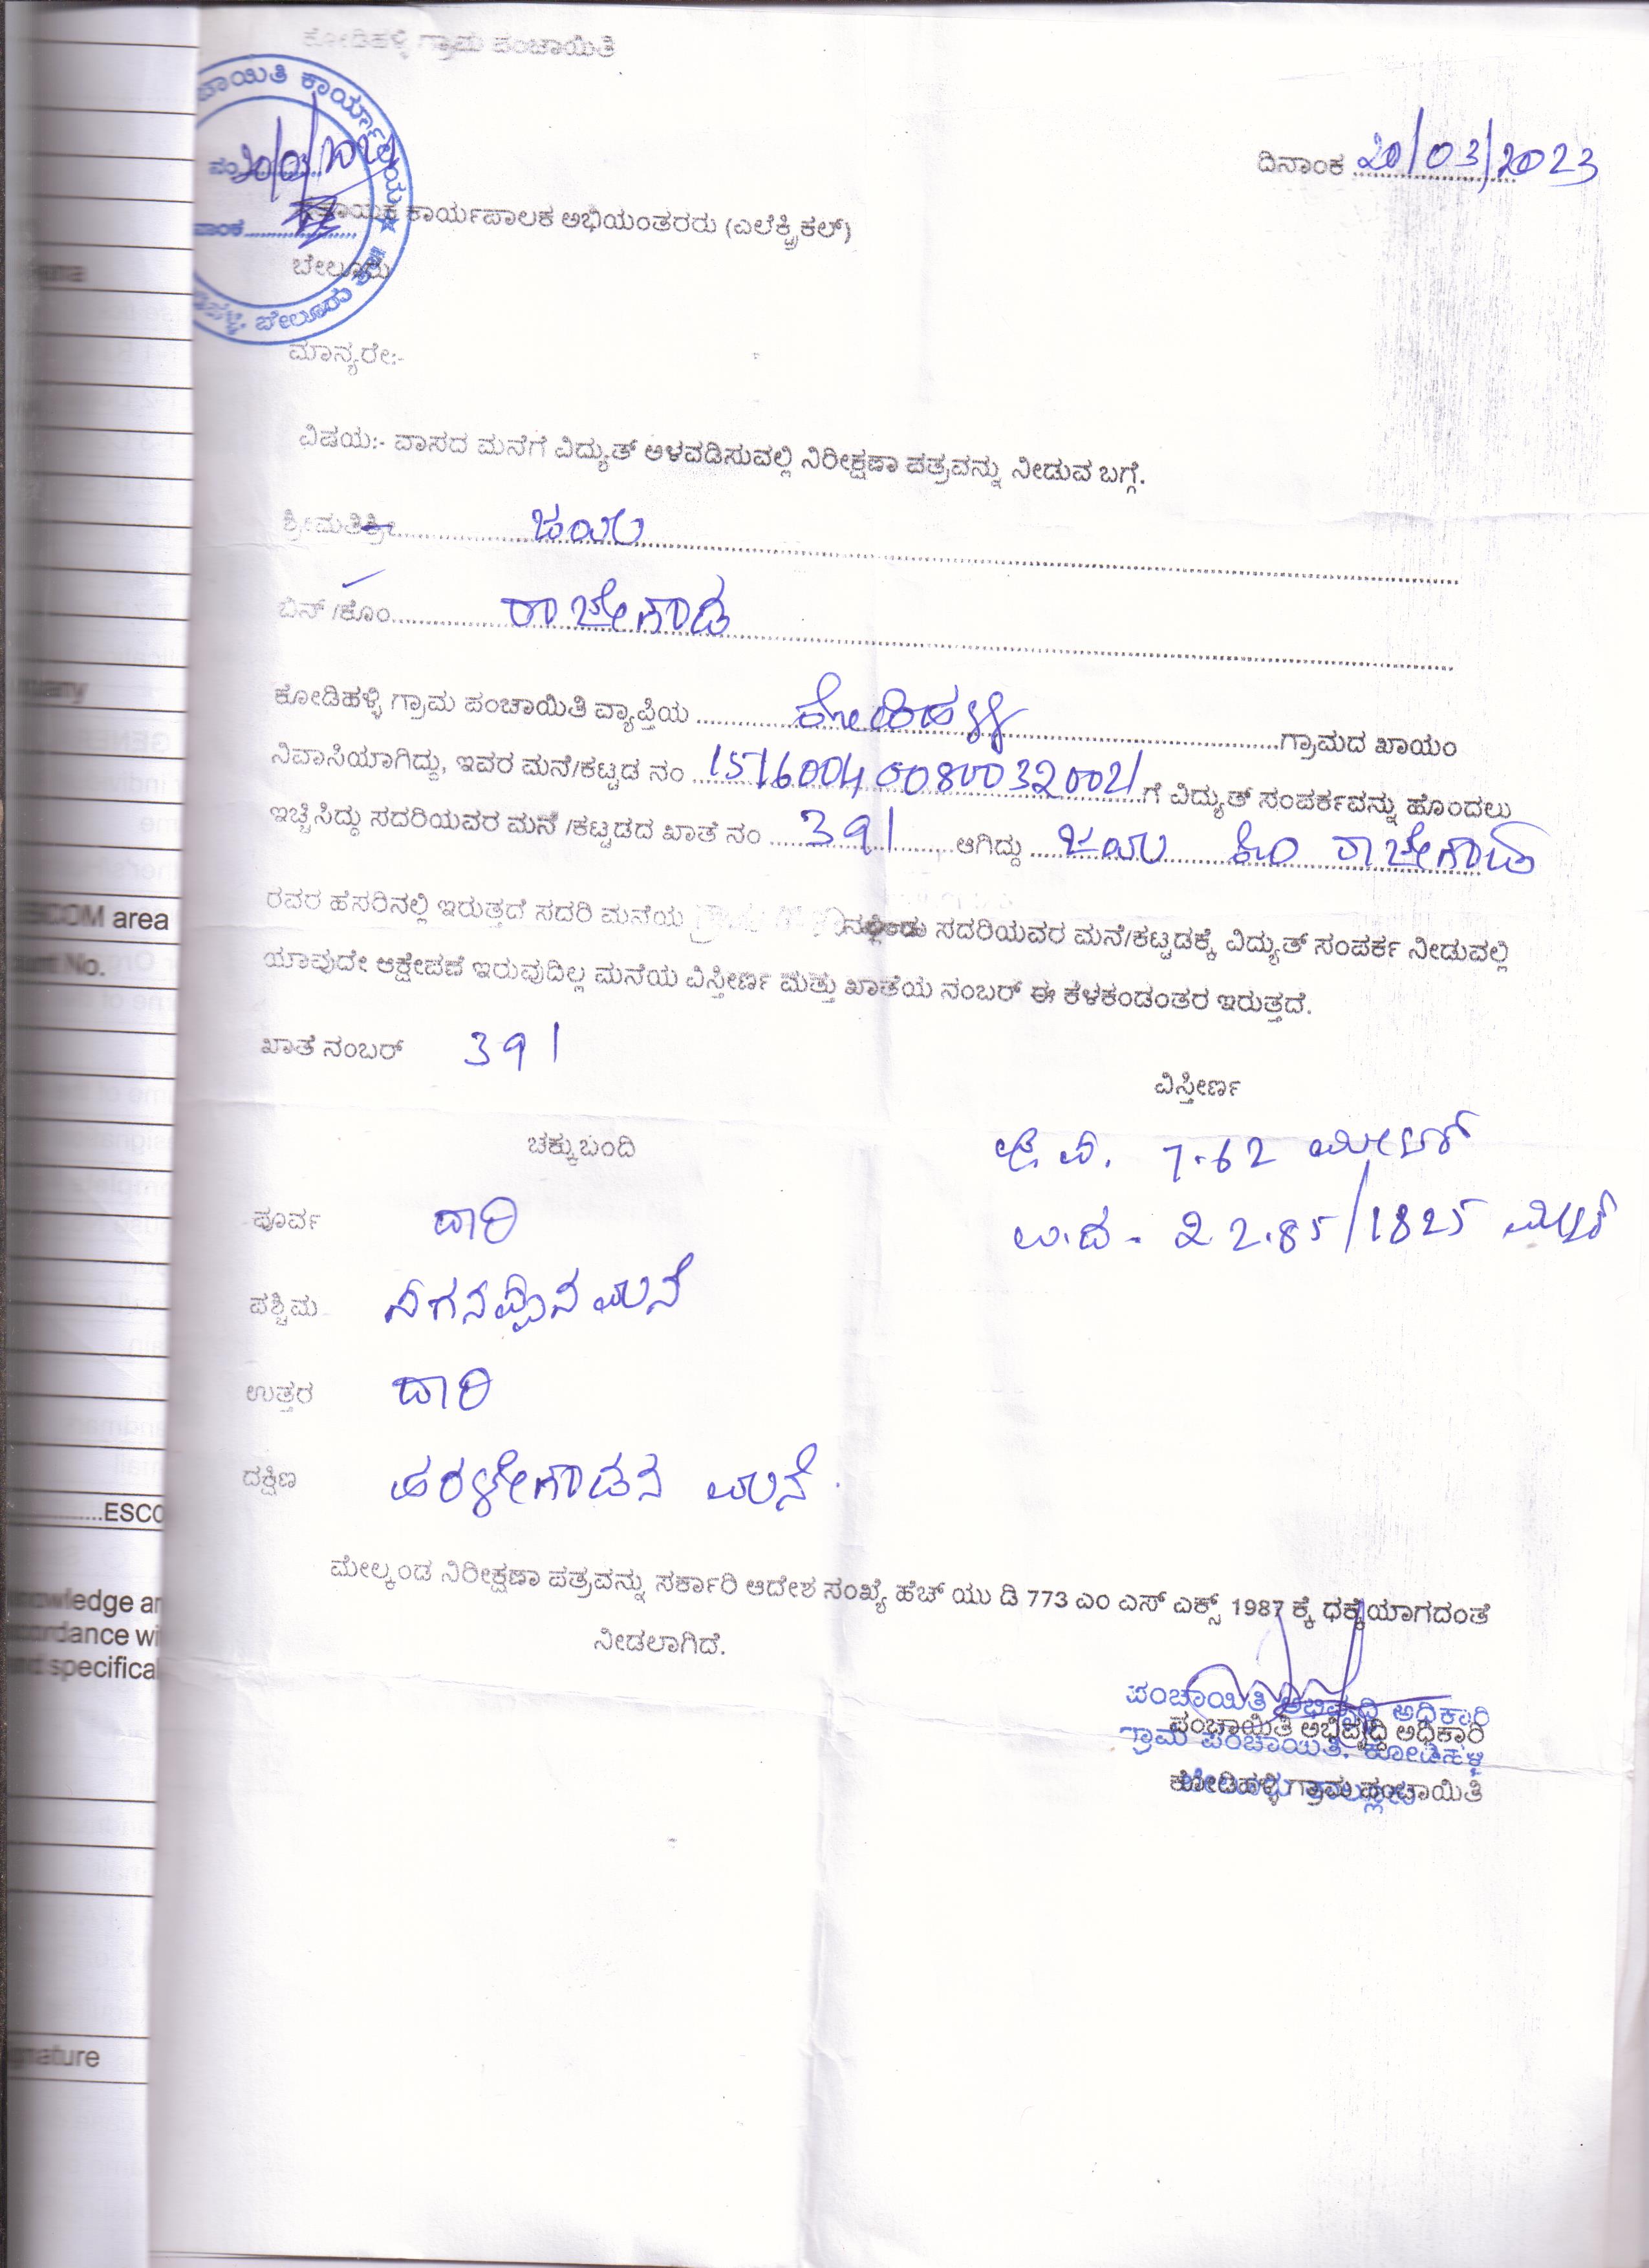 ಕೋಡಿಹಳ್ಳಿ ಗ್ರಾಮ ಪಂಚಾಯಿತಿ
ಚಾಯಿತಿ ಕಾರ್ಯಾಲಯ
ದಿನಾಂಕ 20/03/2023
ಸಹಾಯಕ ಕಾರ್ಯಪಾಲಕ ಅಭಿಯಂತರರು (ಎಲೆಕ್ಟ್ರಿಕಲ್)
ಬೇಲೂರು
ಮಾನ್ಯರೇ:-
ವಿಷಯ:- ವಾಸದ ಮನೆಗೆ ವಿದ್ಯುತ್ ಅಳವಡಿಸುವಲ್ಲಿ ನಿರೀಕ್ಷಣಾ ಪತ್ರವನ್ನು ನೀಡುವ ಬಗ್ಗೆ.
ಶ್ರೀಮತಿ/ಶ್ರೀ ಜಯಲ
ಬಿನ್ /ಕೊಂ ರಾಜೇಗೌಡ
ಕೋಡಿಹಳ್ಳಿ ಗ್ರಾಮ ಪಂಚಾಯಿತಿ ವ್ಯಾಪ್ತಿಯ ಕೋಡಿಹಳ್ಳಿ ಗ್ರಾಮದ ಖಾಯಂ
ನಿವಾಸಿಯಾಗಿದ್ದು, ಇವರ ಮನೆ/ಕಟ್ಟಡ ನಂ 151600400800320021 ಗೆ ವಿದ್ಯುತ್ ಸಂಪರ್ಕವನ್ನು ಹೊಂದಲು
ಇಚ್ಚಿಸಿದ್ದು ಸದರಿಯವರ ಮನೆ /ಕಟ್ಟಡದ ಖಾತೆ ನಂ 391 ಆಗಿದ್ದು ಜಯಲ ಕೊಂ ರಾಜೇಗೌಡ
ರವರ ಹೆಸರಿನಲ್ಲಿ ಇರುತ್ತದೆ ಸದರಿ ಮನೆಯ ಸದರಿಯವರ ಮನೆ/ಕಟ್ಟಡಕ್ಕೆ ವಿದ್ಯುತ್ ಸಂಪರ್ಕ ನೀಡುವಲ್ಲಿ
ಯಾವುದೇ ಆಕ್ಷೇಪಣೆ ಇರುವುದಿಲ್ಲ ಮನೆಯ ವಿಸ್ತೀರ್ಣ ಮತ್ತು ಖಾತೆಯ ನಂಬರ್ ಈ ಕೆಳಕಂಡಂತರ ಇರುತ್ತದೆ.
ಖಾತೆ ನಂಬರ್ 391
ವಿಸ್ತೀರ್ಣ
ಚಕ್ಕುಬಂದಿ
ಪೂ. ಪ. 7.62 ಮೀಟರ್
ಪೂರ್ವ ದಾರಿ
ಉ.ದ. 22.85/1825 ಮೀಟರ್
ಪಶ್ಚಿಮ ಮನೆ
ಉತ್ತರ ದಾರಿ
ದಕ್ಷಿಣ ಮನೆ.
ಮೇಲ್ಕಂಡ ನಿರೀಕ್ಷಣಾ ಪತ್ರವನ್ನು ಸರ್ಕಾರಿ ಆದೇಶ ಸಂಖ್ಯೆ ಹೆಚ್ ಯು ಡಿ 773 ಎಂ ಎಸ್ ಎಕ್ಸ್ 1987 ಕ್ಕೆ ಧಕ್ಕೆಯಾಗದಂತೆ
ನೀಡಲಾಗಿದೆ.
ಪಂಚಾಯಿತಿ ಅಭಿವೃದ್ಧಿ ಅಧಿಕಾರಿ
ಪಂಚಾಯಿತಿ ಅಭಿವೃದ್ಧಿ ಅಧಿಕಾರಿ
ಗ್ರಾಮ ಪಂಚಾಯಿತಿ. ಕೋಡಿಹಳ್ಳಿ
ಕೋಡಿಹಳ್ಳಿ ಗ್ರಾಮ ಪಂಚಾಯಿತಿ
COM area
No.
ESCO
wledge ar
dance wi
specifical
nature